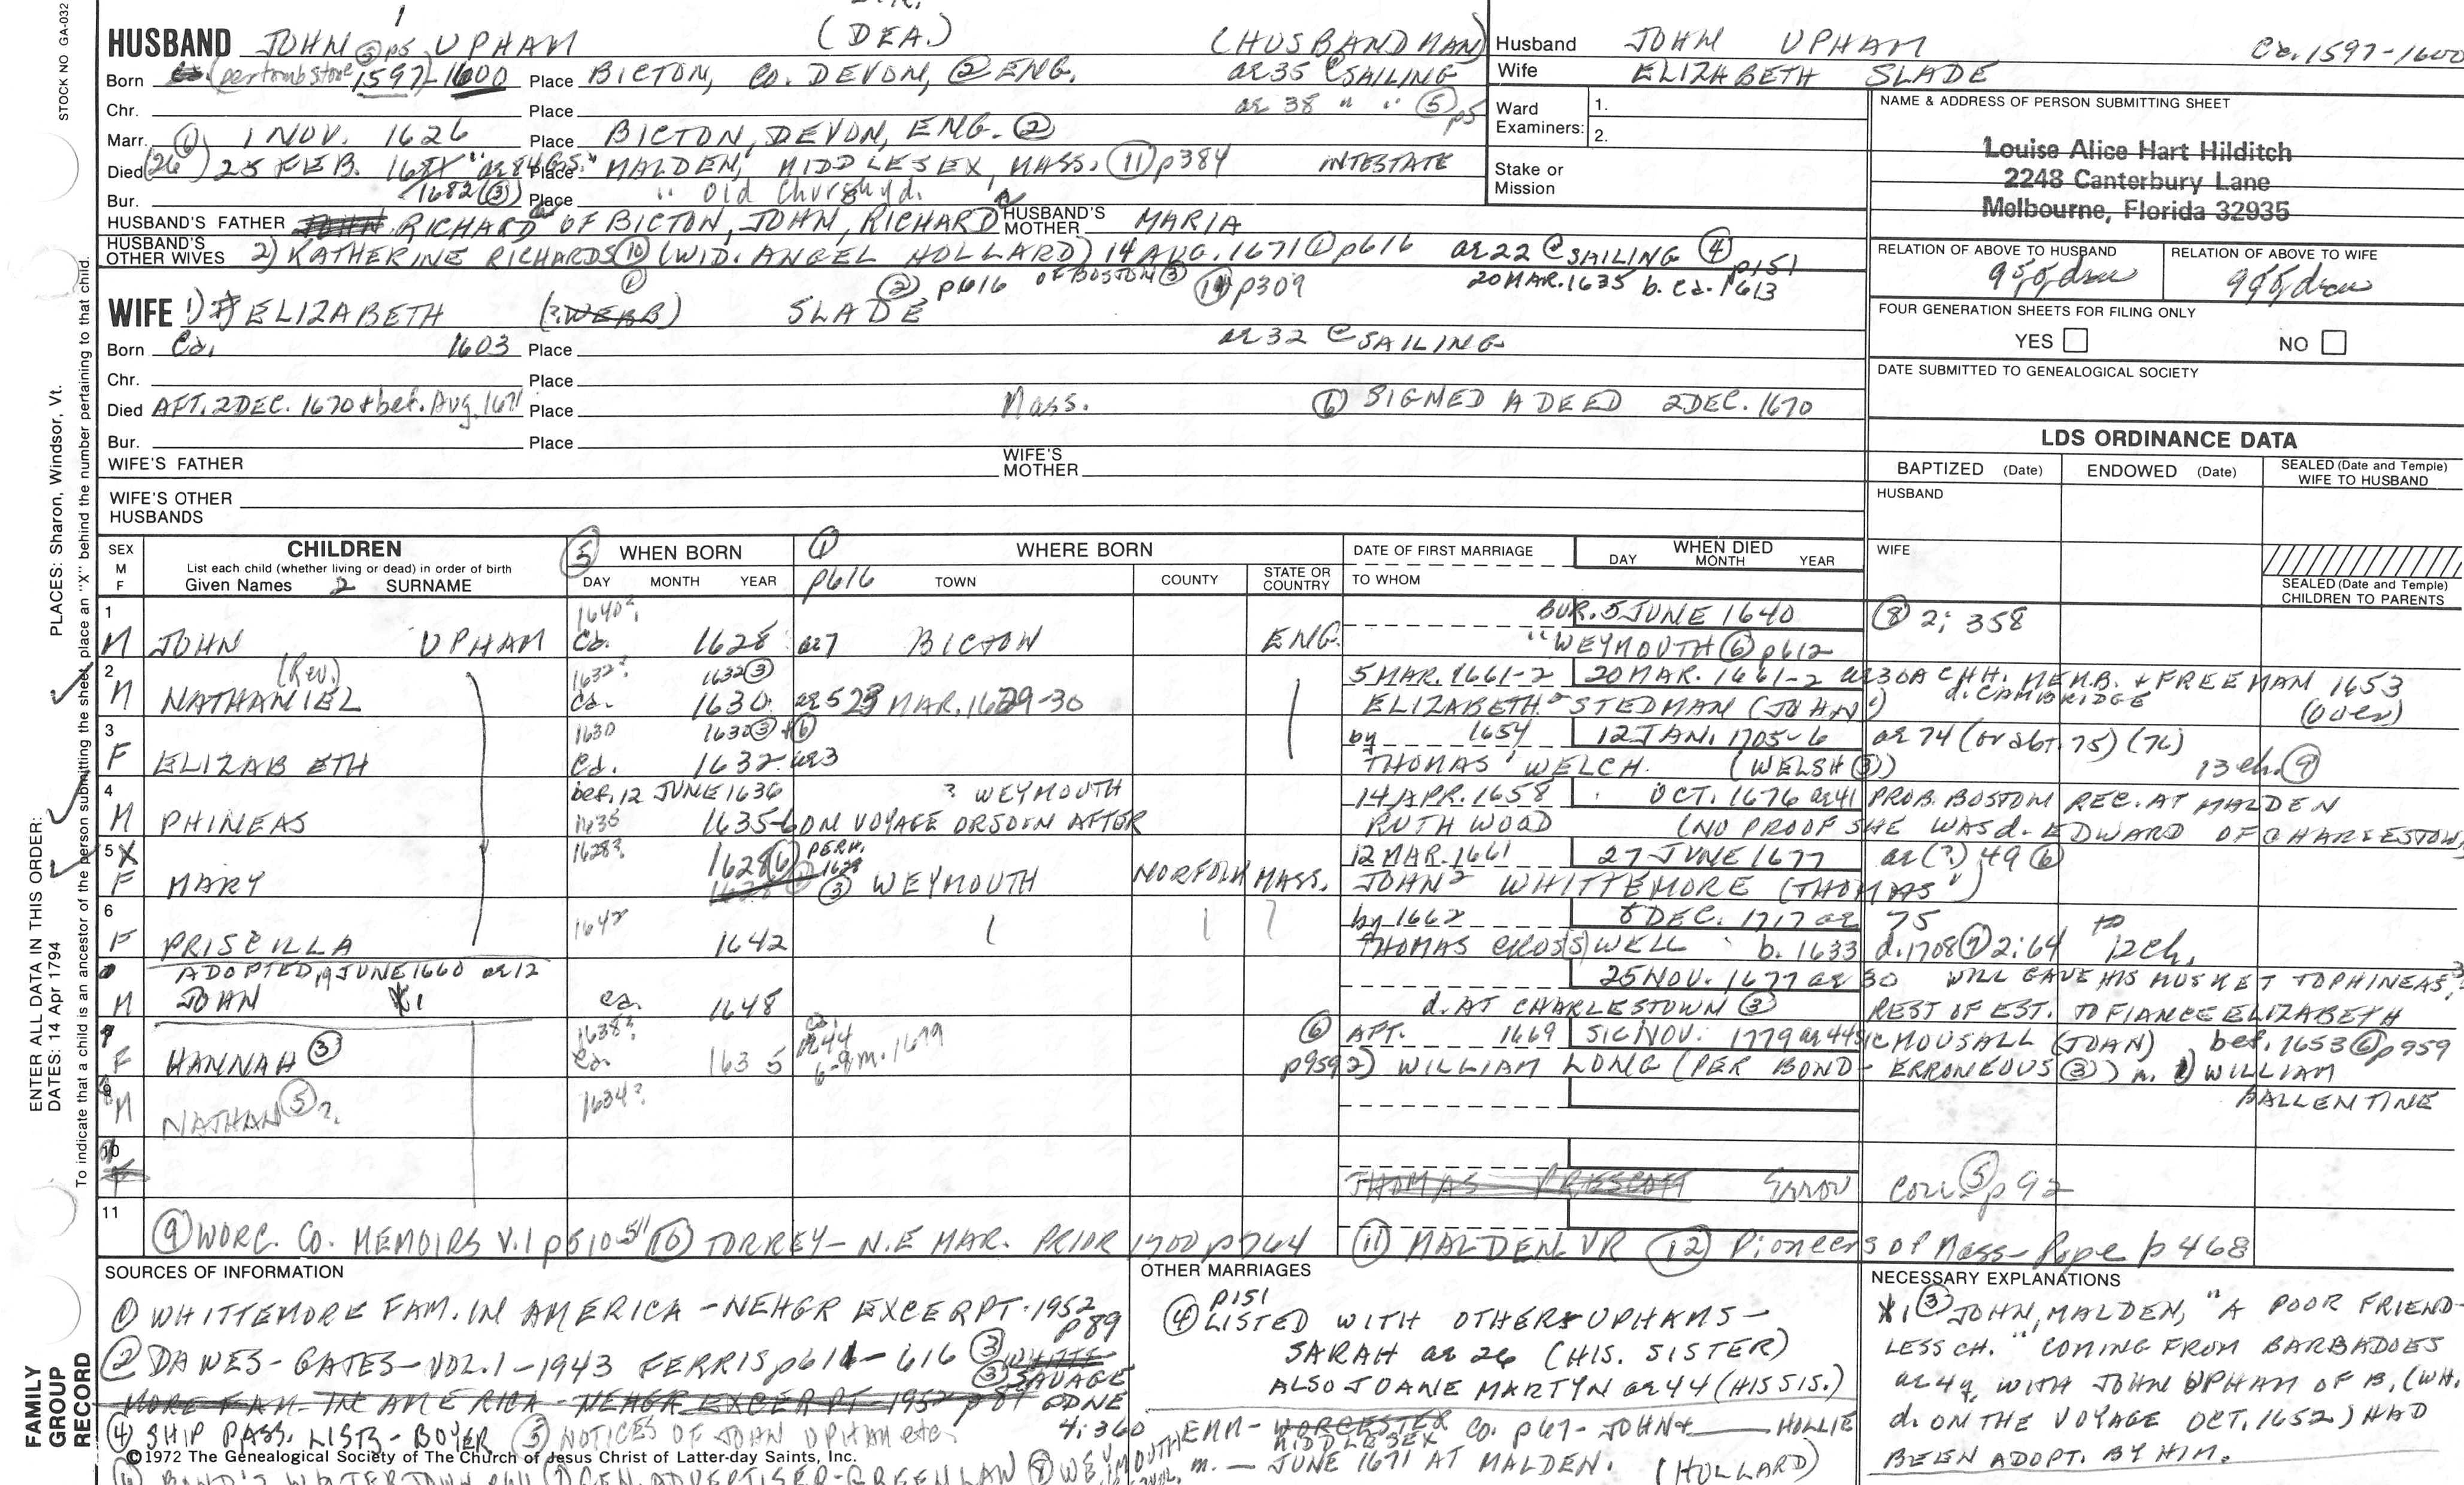 STOCK NO GA-032
PLACES: Sharon, Windsor, Vt.
ENTER ALL DATA IN THIS ORDER:
DATES: 14 Apr 1794
To indicate that a child is an ancestor of the person submitting the sheet, place an "X" behind the number pertaining to that child.
FAMILY GROUP RECORD
HUSBAND JOHN ⑤ p5 UPHAM (DEA.) (HUSBANDMAN)
Born (per tombstone 1597)-1600 Place BICTON, CO. DEVON, ② ENG. ae 35 @ SAILING
Chr. Place ae 38 " " ⑤ p5
Marr. ① 1 NOV. 1626 Place BICTON, DEVON, ENG. ②
Died (26) 25 FEB. 1681 "ae 84 G.S." Place MALDEN, MIDDLESEX, MASS. ⑪ p384 INTESTATE
Bur. 1682 ③ Place " Old Churchyd.
HUSBAND'S FATHER JOHN RICHARD OF BICTON, JOHN, RICHARD HUSBAND'S MOTHER MARIA
HUSBAND'S OTHER WIVES 2) KATHERINE RICHARDS ⑩ (WID. ANGEL HOLLARD) 14 AUG. 1671 ① p616 ae 22 @ SAILING ④ p151
② p616 OF BOSTON ③ ⑭ p309 20 MAR. 1635 b. ca. 1613
WIFE 1) ELIZABETH (?WEBB) SLADE
Born Ca. 1603 Place ae 32 @ SAILING
Chr. Place
Died AFT. 2 DEC. 1670 + bef. Aug. 1671 Place Mass. ⑥ SIGNED A DEED 2 DEC. 1670
Bur. Place
WIFE'S FATHER WIFE'S MOTHER
WIFE'S OTHER HUSBANDS
Husband JOHN UPHAM Ca. 1597-1600
Wife ELIZABETH SLADE
Ward Examiners: 1.
2.
Stake or Mission
NAME & ADDRESS OF PERSON SUBMITTING SHEET
Louise Alice Hart Hilditch
2248 Canterbury Lane
Melbourne, Florida 32935
RELATION OF ABOVE TO HUSBAND RELATION OF ABOVE TO WIFE
FOUR GENERATION SHEETS FOR FILING ONLY
YES NO
DATE SUBMITTED TO GENEALOGICAL SOCIETY
LDS ORDINANCE DATA
BAPTIZED (Date) ENDOWED (Date) SEALED (Date and Temple) WIFE TO HUSBAND
HUSBAND
WIFE
SEALED (Date and Temple) CHILDREN TO PARENTS
SEX M F CHILDREN ⑤ WHEN BORN ① WHERE BORN DATE OF FIRST MARRIAGE WHEN DIED
List each child (whether living or dead) in order of birth
Given Names 2 SURNAME DAY MONTH YEAR p616 TOWN COUNTY STATE OR COUNTRY TO WHOM DAY MONTH YEAR
1 1640? BUR. 5 JUNE 1640 ⑧ 2; 358
M JOHN UPHAM Ca. 1628 ae 7 BICTON ENG. " WEYMOUTH ⑥ p612
2 (Rev.) 1632? 1632 ③ 5 MAR. 1661-2 20 MAR. 1661-2 ae 30 A CHH. MEMB. + FREEMAN 1653
M NATHANIEL Ca. 1630 ae 5 23 MAR. 1629-30 ELIZABETH² STEDMAN (JOHN¹) d. CAMBRIDGE (over)
3 1630 1630 ③ + ⑥ by 1654 12 JAN. 1705-6 ae 74 (or abt. 75) (76)
F ELIZABETH Ca. 1632 ae 3 THOMAS¹ WELCH. (WELSH ③) 13 ch. ⑨
4 bef. 12 JUNE 1636 ? WEYMOUTH 14 APR. 1658 OCT. 1676 ae 41 PROB. BOSTON REC. AT MALDEN
M PHINEAS 1635 1635-6 ON VOYAGE OR SOON AFTER RUTH WOOD (NO PROOF SHE WAS d. EDWARD OF CHARLESTOWN)
5 X 1628? 1628 ⑥ PERH. 1628 12 MAR. 1661 27 JUNE 1677 ae (?) 49 ⑥
F MARY ③ WEYMOUTH NORFOLK MASS. JOHN² WHITTEMORE (THOMAS¹)
6 1642 by 1662 8 DEC. 1717 ae 75
F PRISCILLA 1642 THOMAS CROS(S)WELL b. 1633 d. 1708 ⑦ 2:64 12 ch.
ADOPTED 19 JUNE 1660 ae 12 25 NOV. 1677 ae 30 WILL GAVE HIS MUSKET TO PHINEAS³
M JOHN X1 ca. 1648 d. AT CHARLESTOWN ③ REST OF EST. TO FIANCE ELIZABETH
1638? ⑥ AFT. 1669 SIC NOV. 1779 ae 44 SIC MOUSALL (JOHN) bef. 1653 ⑥ p959
F HANNAH ③ Ca. 1635 ae 44 6-9m. 1679 p959 2) WILLIAM LONG (PER BOND - ERRONEOUS ③) m. 1) WILLIAM BALLENTINE
9 M NATHAN ⑤ ? 1634?
10 F THOMAS PRESCOTT ERROR Corr. ⑤ p92
11 ⑨ WORC. CO. MEMOIRS V.1 p510-511 ⑩ TORREY - N.E MAR. PRIOR 1700 p764 ⑪ MALDEN VR ⑫ Pioneers of Mass - Pope p 468
SOURCES OF INFORMATION
① WHITTEMORE FAM. IN AMERICA - NEHGR EXCERPT - 1952 p89
② DAWES-GATES - VOL. 1 - 1943 FERRIS p611-616 ③ SAVAGE
MORE FAM. IN AMERICA - NEHGR EXCERPT - 1952 p89 4:360
④ SHIP PASS. LISTS - BOYER ⑤ NOTICES OF JOHN UPHAM etc.
©1972 The Genealogical Society of The Church of Jesus Christ of Latter-day Saints, Inc.
OTHER MARRIAGES
④ p151 LISTED WITH OTHER UPHAMS -
SARAH ae 26 (HIS. SISTER)
ALSO JOANE MARTYN ae 44 (HIS SIS.)
EMR - WORCESTER MIDDLESEX CO. p67 - JOHN + HOLLIE
m. — JUNE 1671 AT MALDEN. (HOLLARD)
NECESSARY EXPLANATIONS
X1 ③ JOHN, MALDEN, "A POOR FRIEND-
LESS CH." COMING FROM BARBADOES
ae 4y, WITH JOHN UPHAM OF B. (WH.
d. ON THE VOYAGE OCT. 1652) HAD
BEEN ADOPT. BY HIM.